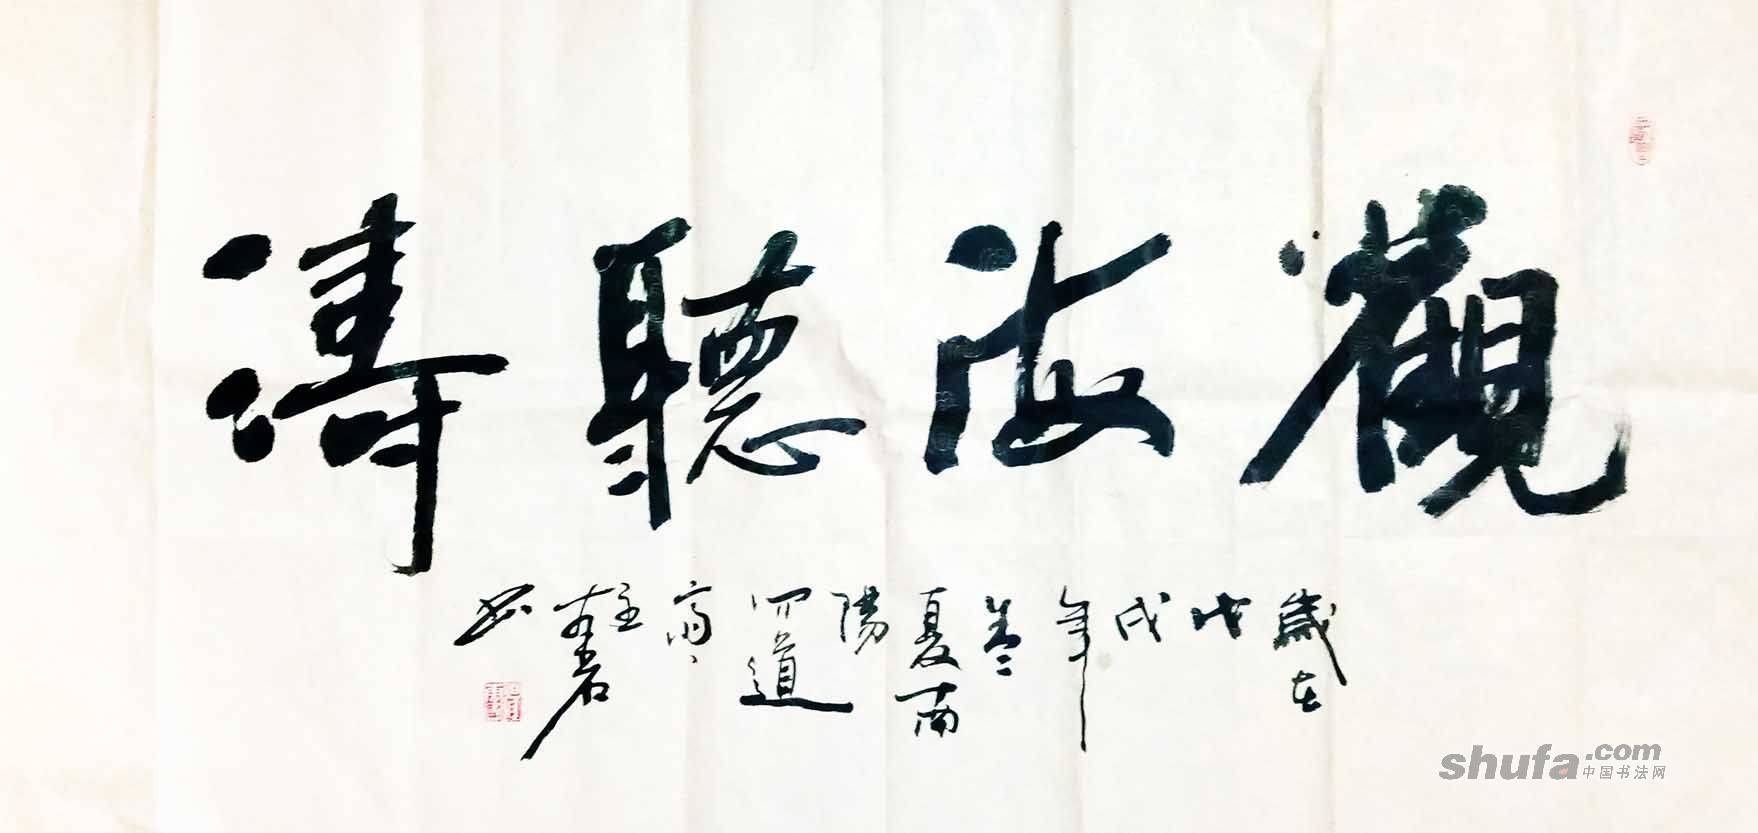 觀海聽濤
歲在戊戌年
夏南陽
四道
齋主
書
shufa.com
中国书法网